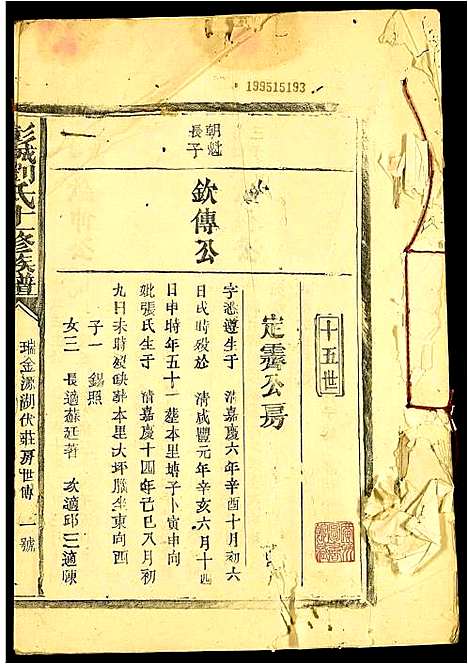 199515193
十五世
定霽公房
朝魁長子
欽傳公
字懋遵生于　清嘉慶六年辛酉十月初六
日戌時歿於　清咸豐元年辛亥六月十四
日申時年五十一塟本里塘子卜寅申向
妣張氏生于　清嘉慶十四年己巳八月初
九日未時歿缺塟本里大坪腦坐東向西
子一　錫照
女三　長適蘇廷著　次適邱　三適陳
一
彭城劉氏十一修族譜
瑞金源湖伏莊房世傳　一號